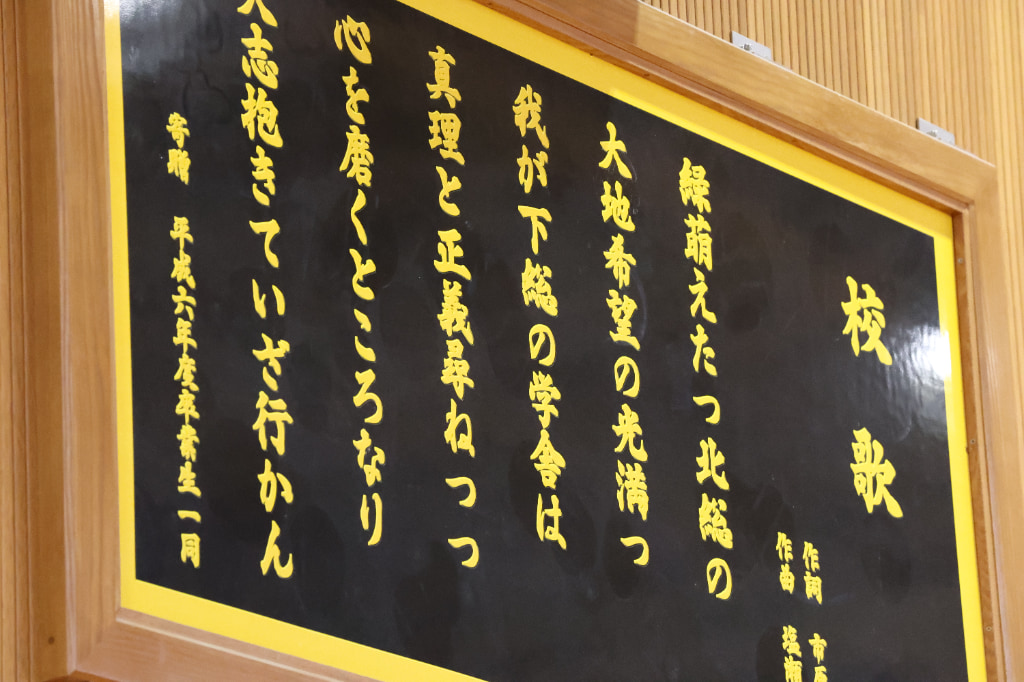 校歌
作詞 市原
作曲 塩瀬
緑萌えたつ北総の
大地希望の光満つ
我が下総の学舎は
真理と正義尋ねつつ
心を磨くところなり
大志抱きていざ行かん
寄贈 平成六年度卒業生一同